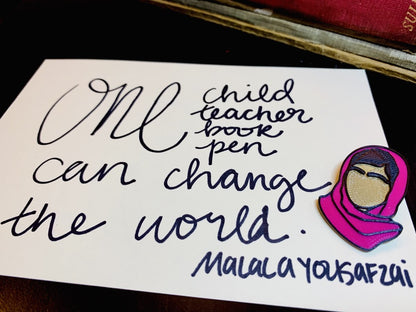 one child
teacher
book
pen
can change
the world.
Malala Yousafzai